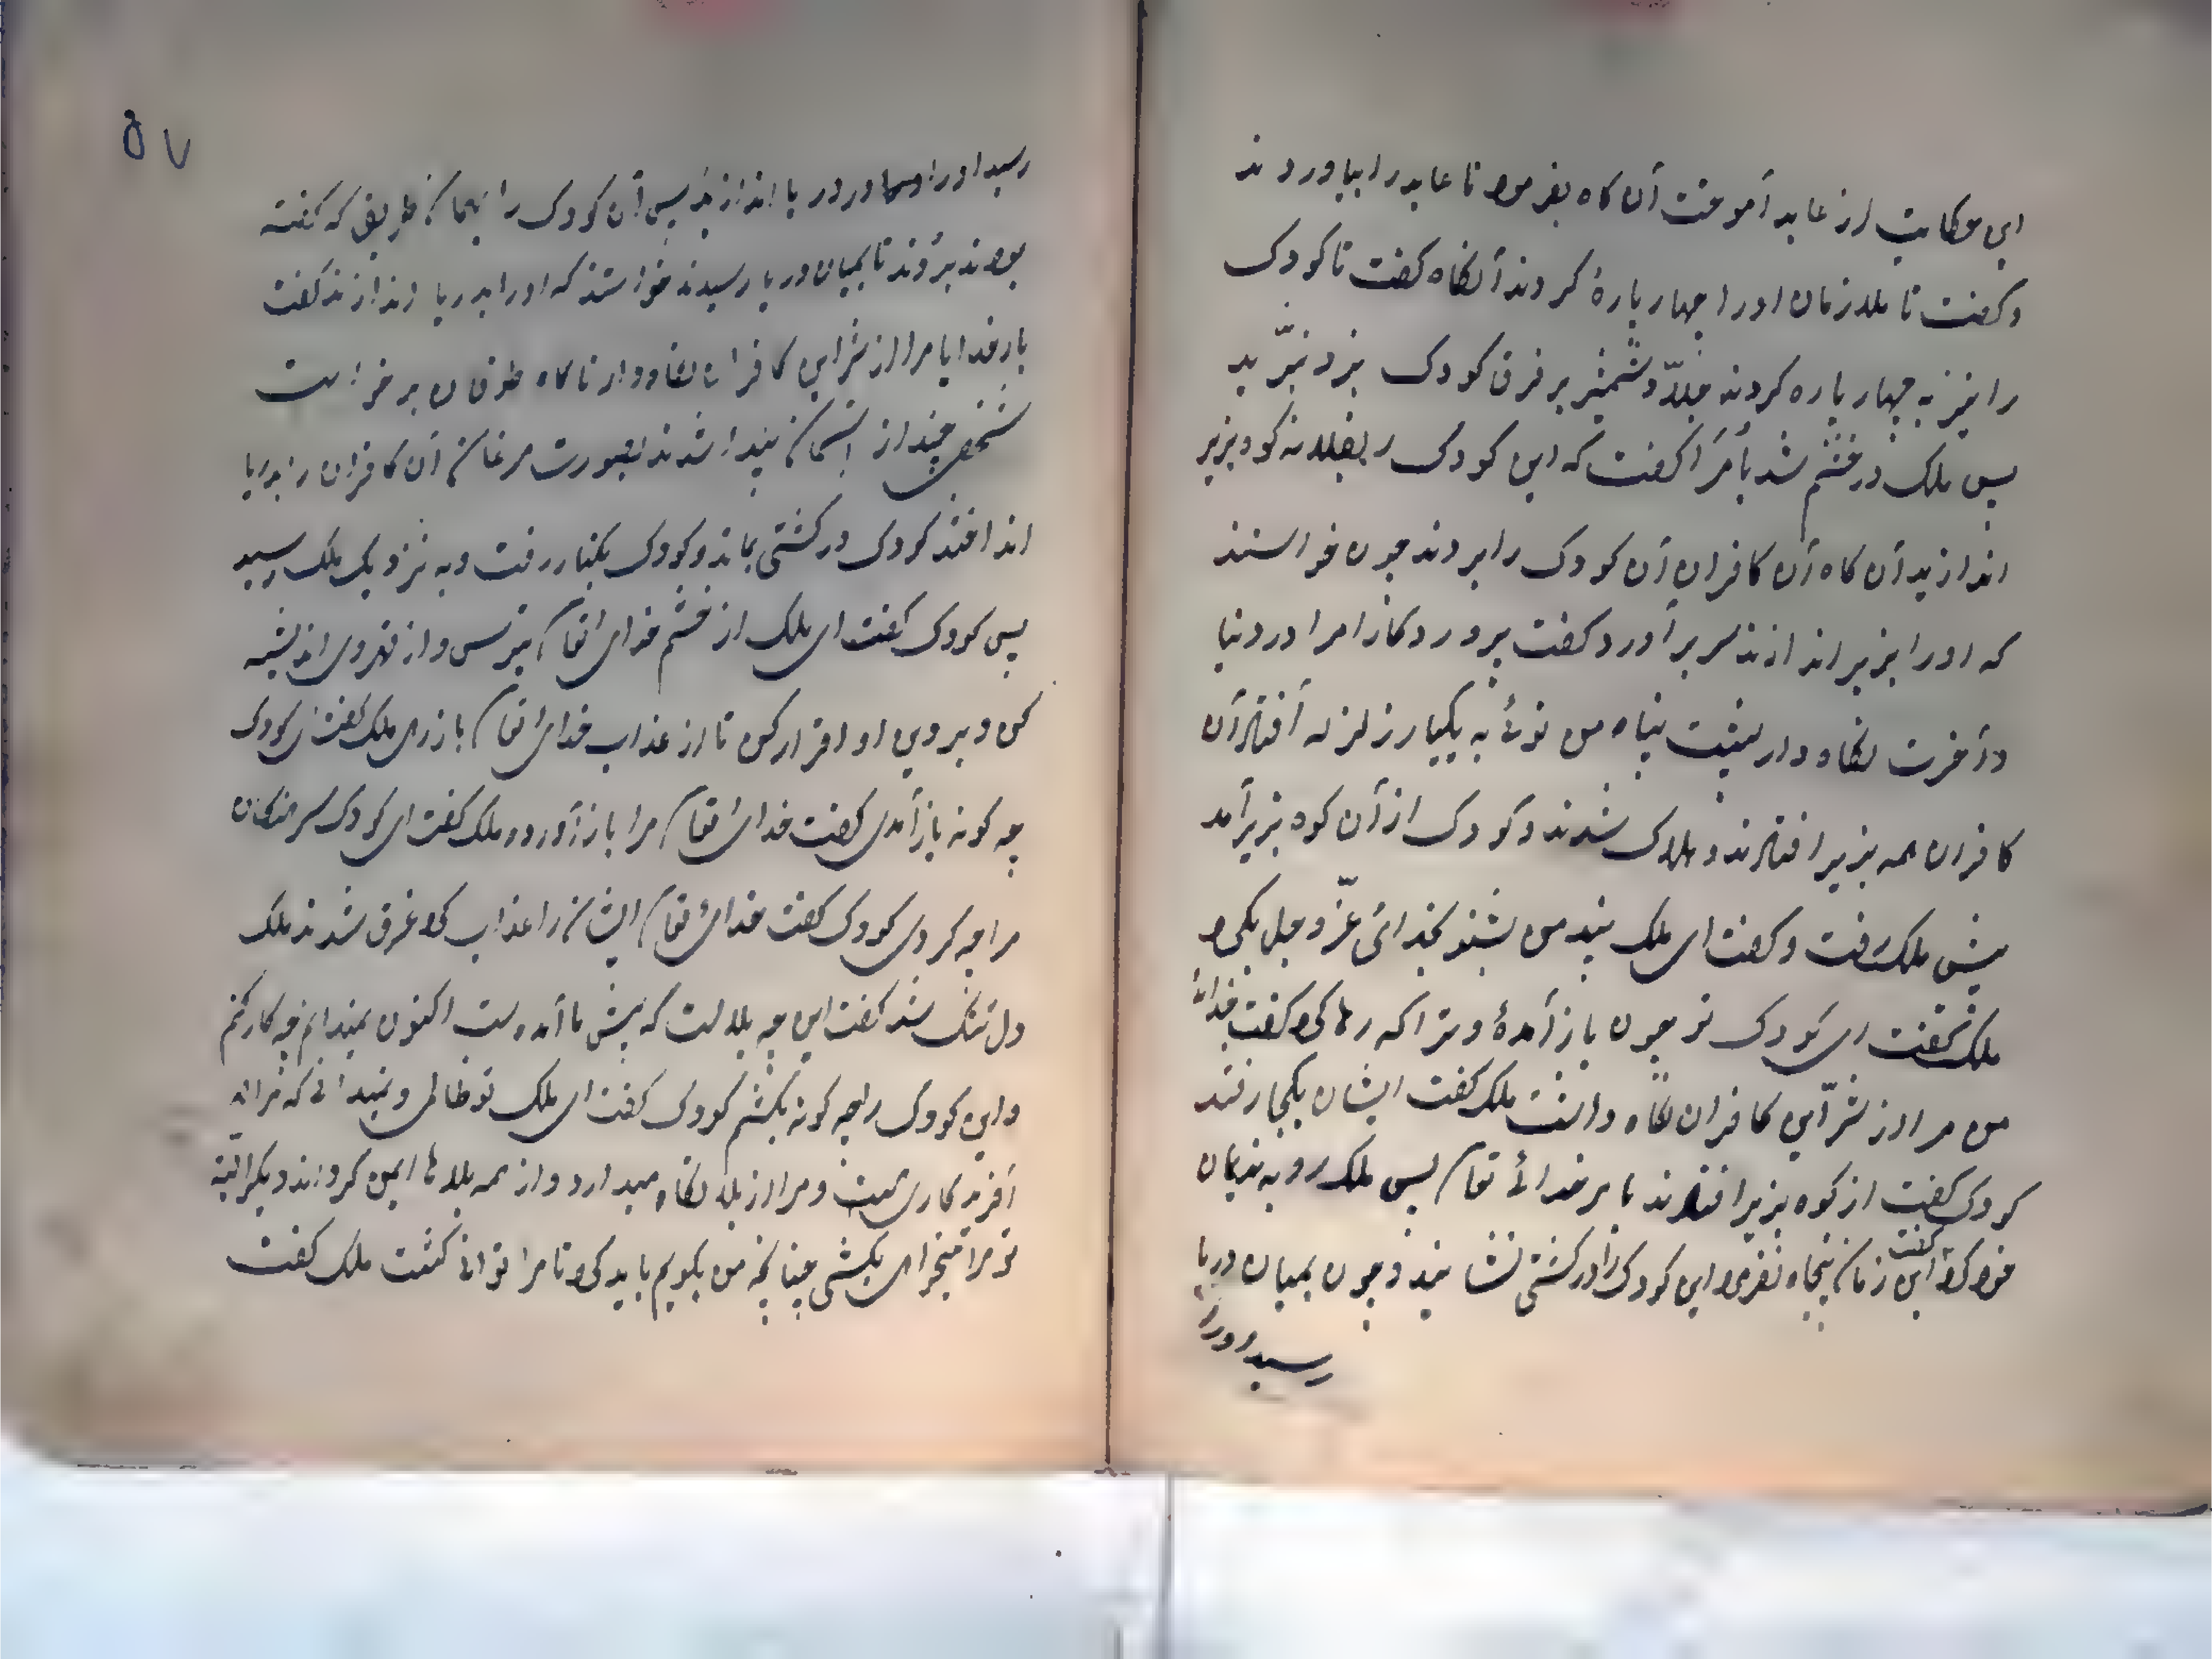 این حکایت از عابد آموخت آن کاه بفرمود تا عابد را بیاوردند
و کفت تا ملازمان او را چهار پارهٔ کردند آنکاه کفت تا کودک
را نیز به چهار پاره کردند جلّاد شمشیر بر فرق کودک بزد نبرّید
پس ملک در خشم شد بأمرا کفت که این کودک را بقلعه کوه بزیر
اندازید آن کاه آن کافران آن کودک را بردند چون خواستند
که او را بزیر اندازند سر برآورد کفت پروردکارا مرا در دنیا
و آخرت نکاه دار پشت پناه من توئ به یکبار زلزله افتاد آن
کافران همه بزیر افتادند و هلاک شدند و کودک از آن کوه بزیر آمد
پیش ملک رفت و کفت ای ملک پند من بشنو بخدائی عزّ و جل بکرو
ملک کفت ای کودک تو چون باز آمدهٔ و ترا که رها کرد کفت خدائ
من مرا از شرّ این کافران نکاه داشت ملک کفت ایشان بکجا رفتند
کودک کفت از کوه بزیر افتادند بامر خدائ تعا پس ملک رو به ندیمان
خود کرد کفت این زمان پنجاه نفر این کودک را در کشتی نشانید و چون بمیان دریا
رسید او را
۵۷
رسید او را در دریا اندازید پس آن کودک را بهمان طریق که کفته
بودند بردند تا بمیان دریا رسیدند خواستند که او را بدریا اندازند کفت
بار خدایا مرا از شر این کافران نکاه دار ناکاه طوفان برخواست
شخصی چند از آسمان پیدا شدند بصورت مرغان آن کافران را بدریا
انداختند کودک در کشتی بماند و کودک بکنار رفت و به نزدیک ملک رسید
پس کودک کفت ای ملک از خشم خدای تعا بترس و از قهر وی اندیشه
کن و بر وی او اقرار کن تا از عذاب خدای تعا باز رهی ملک کفت ای کودک
چه کونه باز آمدی کفت خدای تعا مرا باز آورد ملک کفت ای کودک سرهنکان
مرا چه کردی کودک کفت خدای تعا ایشان را عذاب کرد غرق شدند ملک
دل تنک شد کفت این چه بلا است که پیش ما آمده است اکنون نمیدانم چه کار کنم
و این کودک را چه کونه بکشم کودک کفت ای ملک تو ظالمی و نمیدانی که مرا
آفرید کاری هست و مرا از بلا نکاه میدارد و از همه بلاها ایمن کرداند و دیکر
تو مرا میخواهی بکشی چنانچه من بکویم باید کرد تا مرا توانی کشت ملک کفت